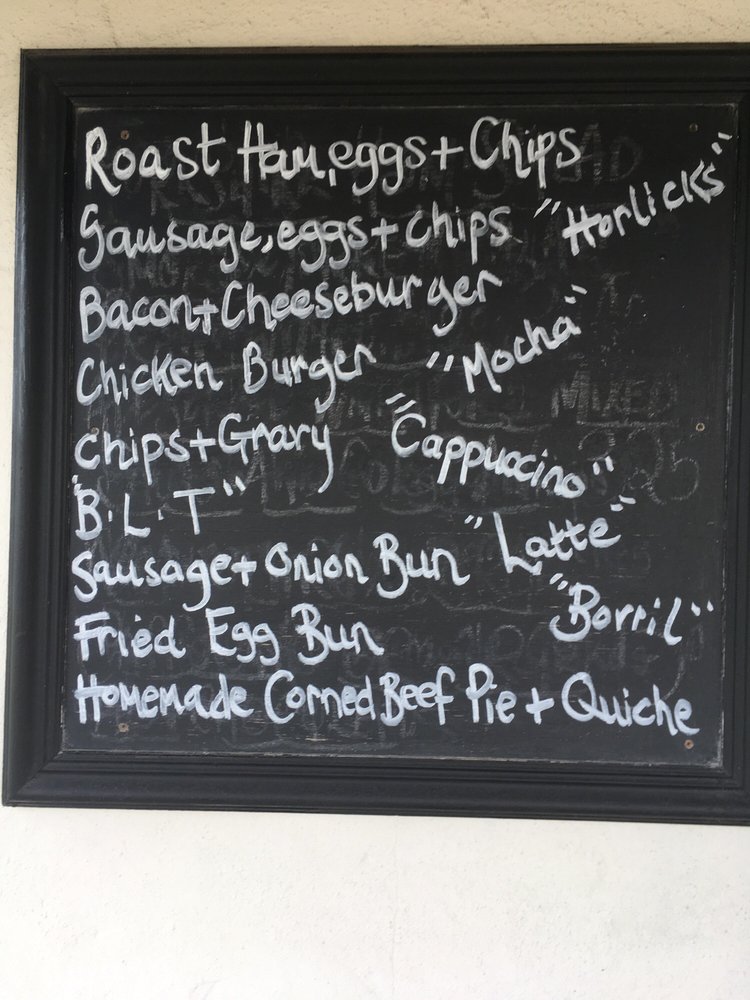 Roast Ham, eggs + Chips
Sausage, eggs + chips "Horlicks"
Bacon + Cheeseburger
Chicken Burger "Mocha"
chips + Gravy "Cappuccino"
"B.L.T" "Latte"
Sausage + Onion Bun
Fried Egg Bun "Borril"
Homemade Corned Beef Pie + Quiche